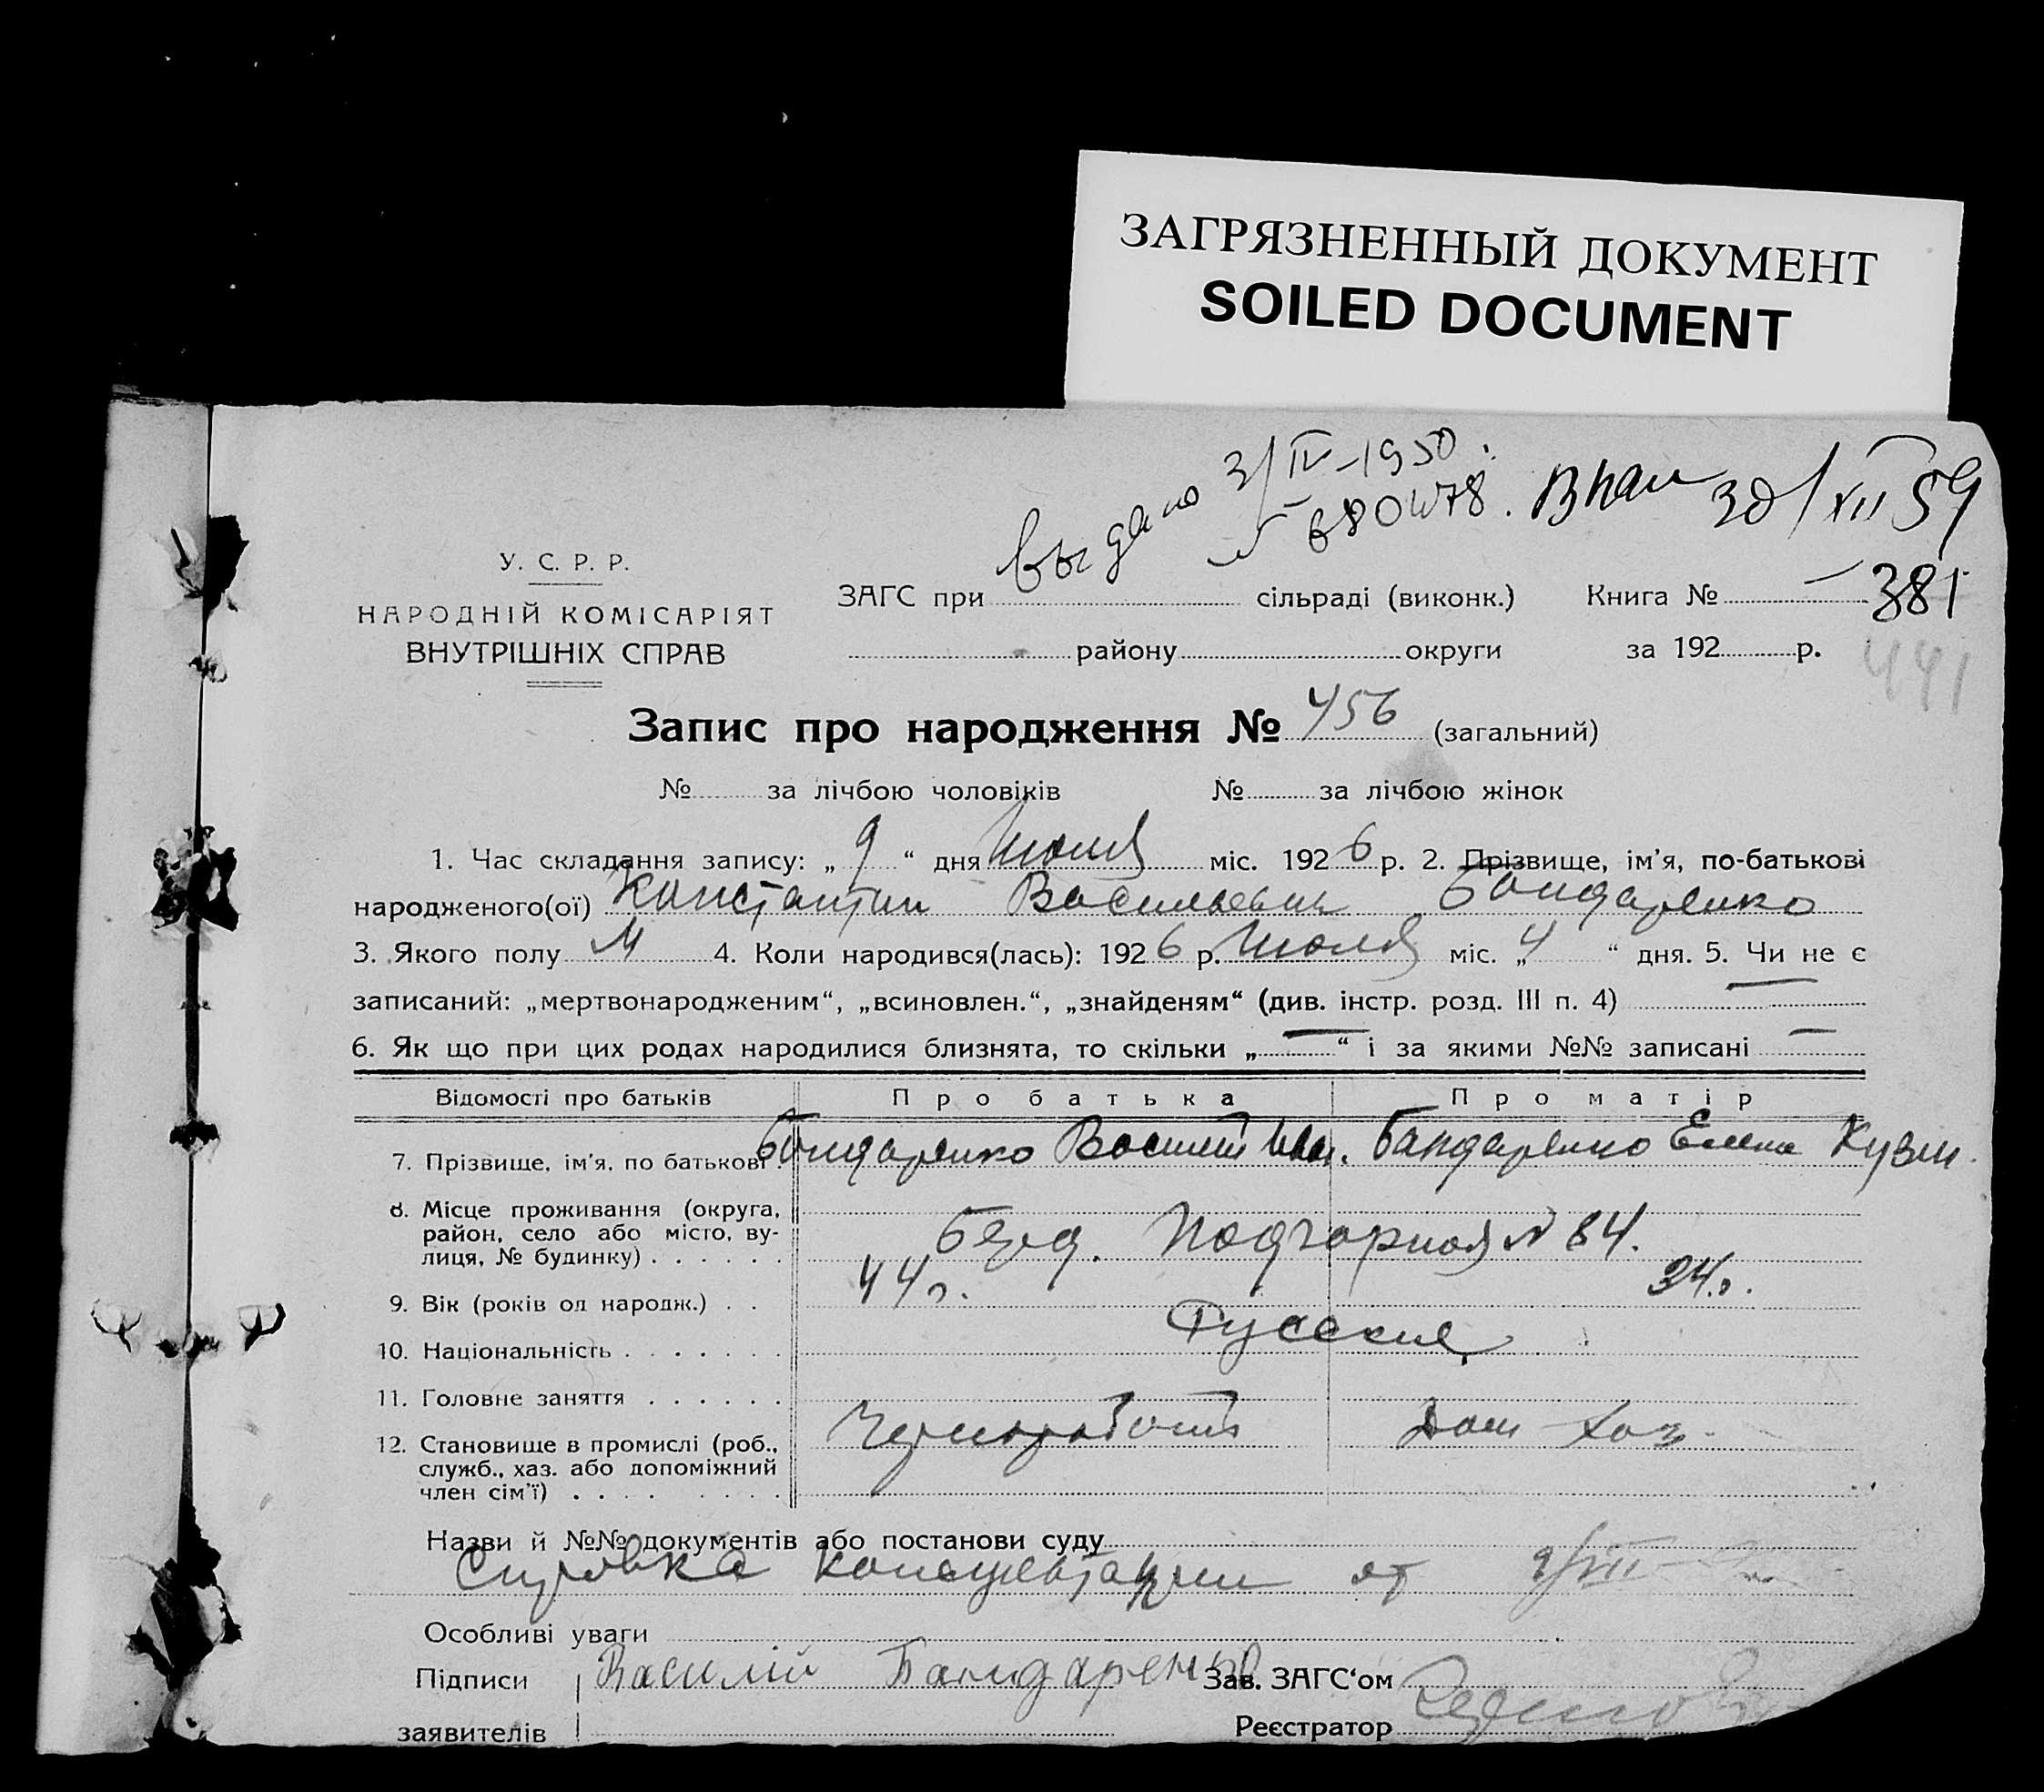 ЗАГРЯЗНЕННЫЙ ДОКУМЕНТ
SOILED DOCUMENT
выдано 3/IV-1950.
30/XII 59
У. С. Р. Р.
НАРОДНІЙ КОМІСАРІЯТ
ВНУТРІШНІХ СПРАВ
ЗАГС при сільраді (виконк.) Книга № 381
району округи за 192 р. 441
Запис про народження № 456 (загальний)
№ за лічбою чоловіків № за лічбою жінок
1. Час складання запису: „ 9 “ дня Июля міс. 1926 р. 2. Прізвище, ім’я, по-батькові
народженого(ої) Константин Васильевич Бондаренко
3. Якого полу М 4. Коли народився(лась): 1926 р. Июля міс. „ 4 “ дня. 5. Чи не є
записаний: „мертвонародженим“, „всиновлен.“, „знайденям“ (див. інстр. розд. III п. 4) —
6. Як що при цих родах народилися близнята, то скільки „ — “ і за якими №№ записані —
Відомості про батьків Про батька Про матір
7. Прізвище, ім’я, по батькові . Бондаренко Василий Иван. Бандаренко Елена Кузм.
8. Місце проживання (округа,
район, село або місто, ву-
лиця, № будинку) . . . . . . Берд. Подгорная № 84.
9. Вік (років од народж.) . . 44 г. 34 г.
10. Національність . . . . . . . Русские
11. Головне заняття . . . . . .
12. Становище в промислі (роб., Чернорабочий Дом хоз.
служб., хаз. або допоміжний
член сім’ї) . . . . . . . .
Назви й №№ документів або постанови суду
Справка консультации от 9/VII
Особливі уваги
Підписи Василий Бандаренко Зав. ЗАГС‘ом
заявителів Реєстратор